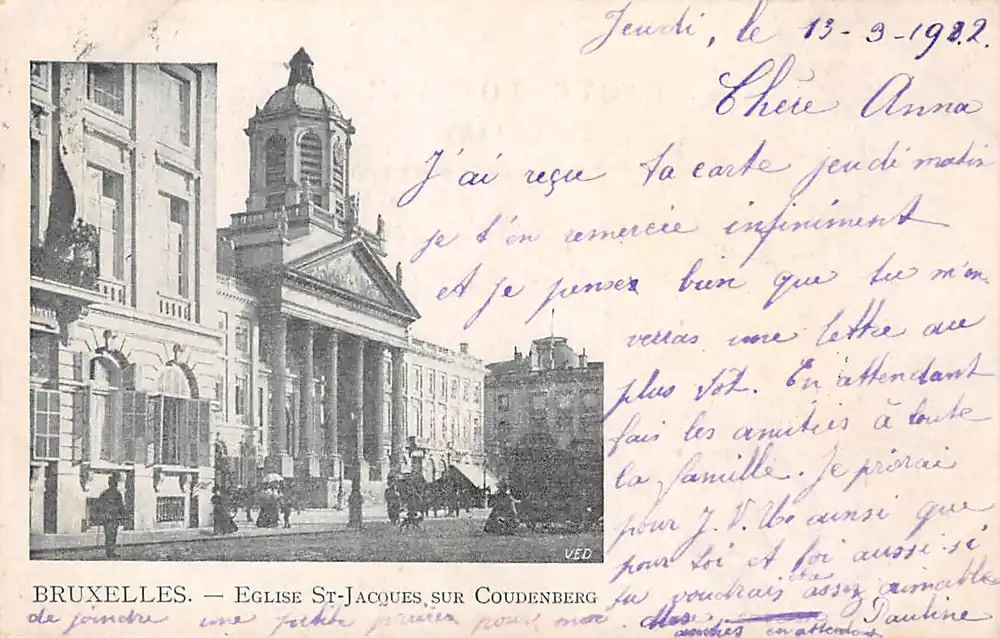 Jeudi, le 13-3-1902.
Chère Anna
J'ai reçu ta carte jeudi matin
je t'en remercie infiniment
et je pense bien que tu m'en
verras une lettre au
plus tôt. En attendant
fais les amitiés à toute
la famille. Je prierai
pour J. V. ainsi que
pour toi et toi aussi si
tu voudrais assez aimable
de joindre une petite prière pour moi. Pauline
en attendant
VED
BRUXELLES. — EGLISE ST-JACQUES SUR COUDENBERG